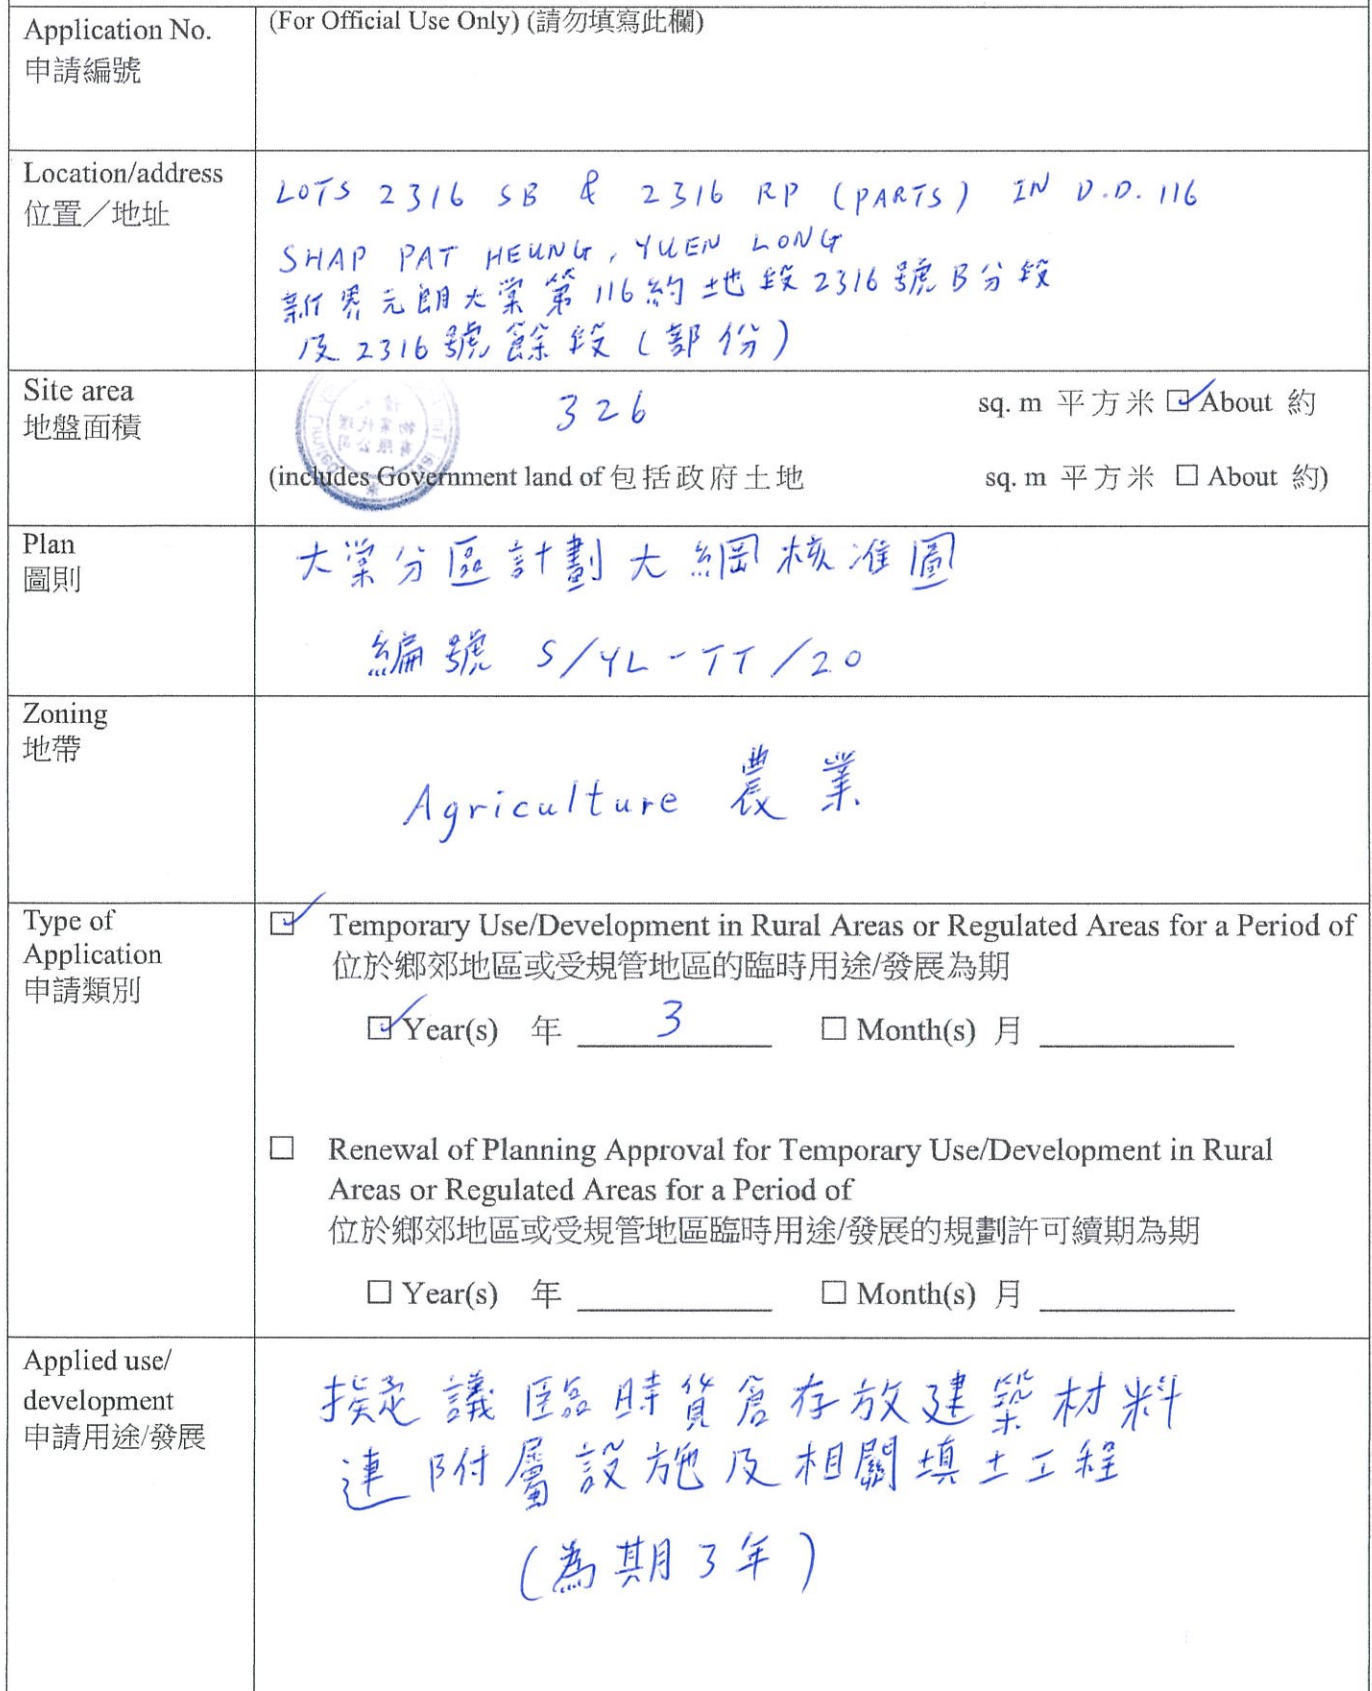 Application No.
申請編號
(For Official Use Only) (請勿填寫此欄)
Location/address
位置／地址
LOTS 2316 SB & 2316 RP (PARTS) IN D.D. 116
SHAP PAT HEUNG, YUEN LONG
新界元朗大棠第116約地段2316號B分段
及2316號餘段(部份)
Site area
地盤面積
326 sq. m 平方米 ☑ About 約
(includes Government land of 包括政府土地 sq. m 平方米 ☐ About 約)
Plan
圖則
大棠分區計劃大綱核准圖
編號 S/YL-TT/20
Zoning
地帶
Agriculture 農業
Type of
Application
申請類別
☑ Temporary Use/Development in Rural Areas or Regulated Areas for a Period of
位於鄉郊地區或受規管地區的臨時用途/發展為期
☑ Year(s) 年 3 ☐ Month(s) 月
☐ Renewal of Planning Approval for Temporary Use/Development in Rural
Areas or Regulated Areas for a Period of
位於鄉郊地區或受規管地區臨時用途/發展的規劃許可續期為期
☐ Year(s) 年 ☐ Month(s) 月
Applied use/
development
申請用途/發展
議臨時貨倉存放建築材料
連附屬設施及相關填土工程
(為期3年)